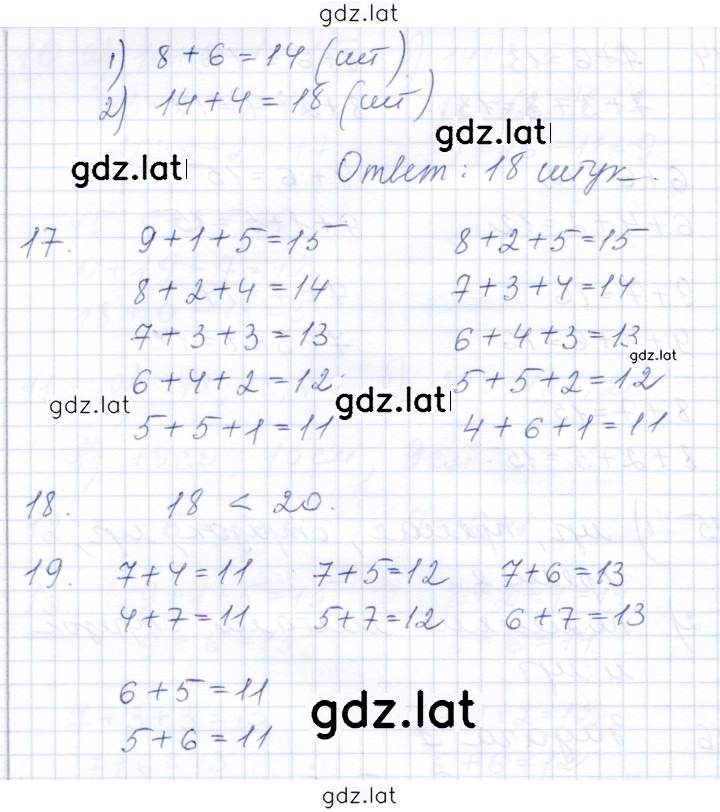 gdz.lat
1) 8 + 6 = 14 (шт)
2) 14 + 4 = 18 (шт)
gdz.lat
gdz.lat
Ответ: 18 штук.
17. 9 + 1 + 5 = 15 8 + 2 + 5 = 15
8 + 2 + 4 = 14 7 + 3 + 4 = 14
7 + 3 + 3 = 13 6 + 4 + 3 = 13
gdz.lat
6 + 4 + 2 = 12 5 + 5 + 2 = 12
gdz.lat gdz.lat
5 + 5 + 1 = 11 4 + 6 + 1 = 11
18. 18 < 20.
19. 7 + 4 = 11 7 + 5 = 12 7 + 6 = 13
4 + 7 = 11 5 + 7 = 12 6 + 7 = 13
6 + 5 = 11
gdz.lat
5 + 6 = 11
gdz.lat